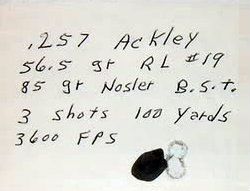 .257 Ackley
56.5 gr RL #19
85 gr Nosler B.S.t.
3 shots 100 yards
3600 FPS